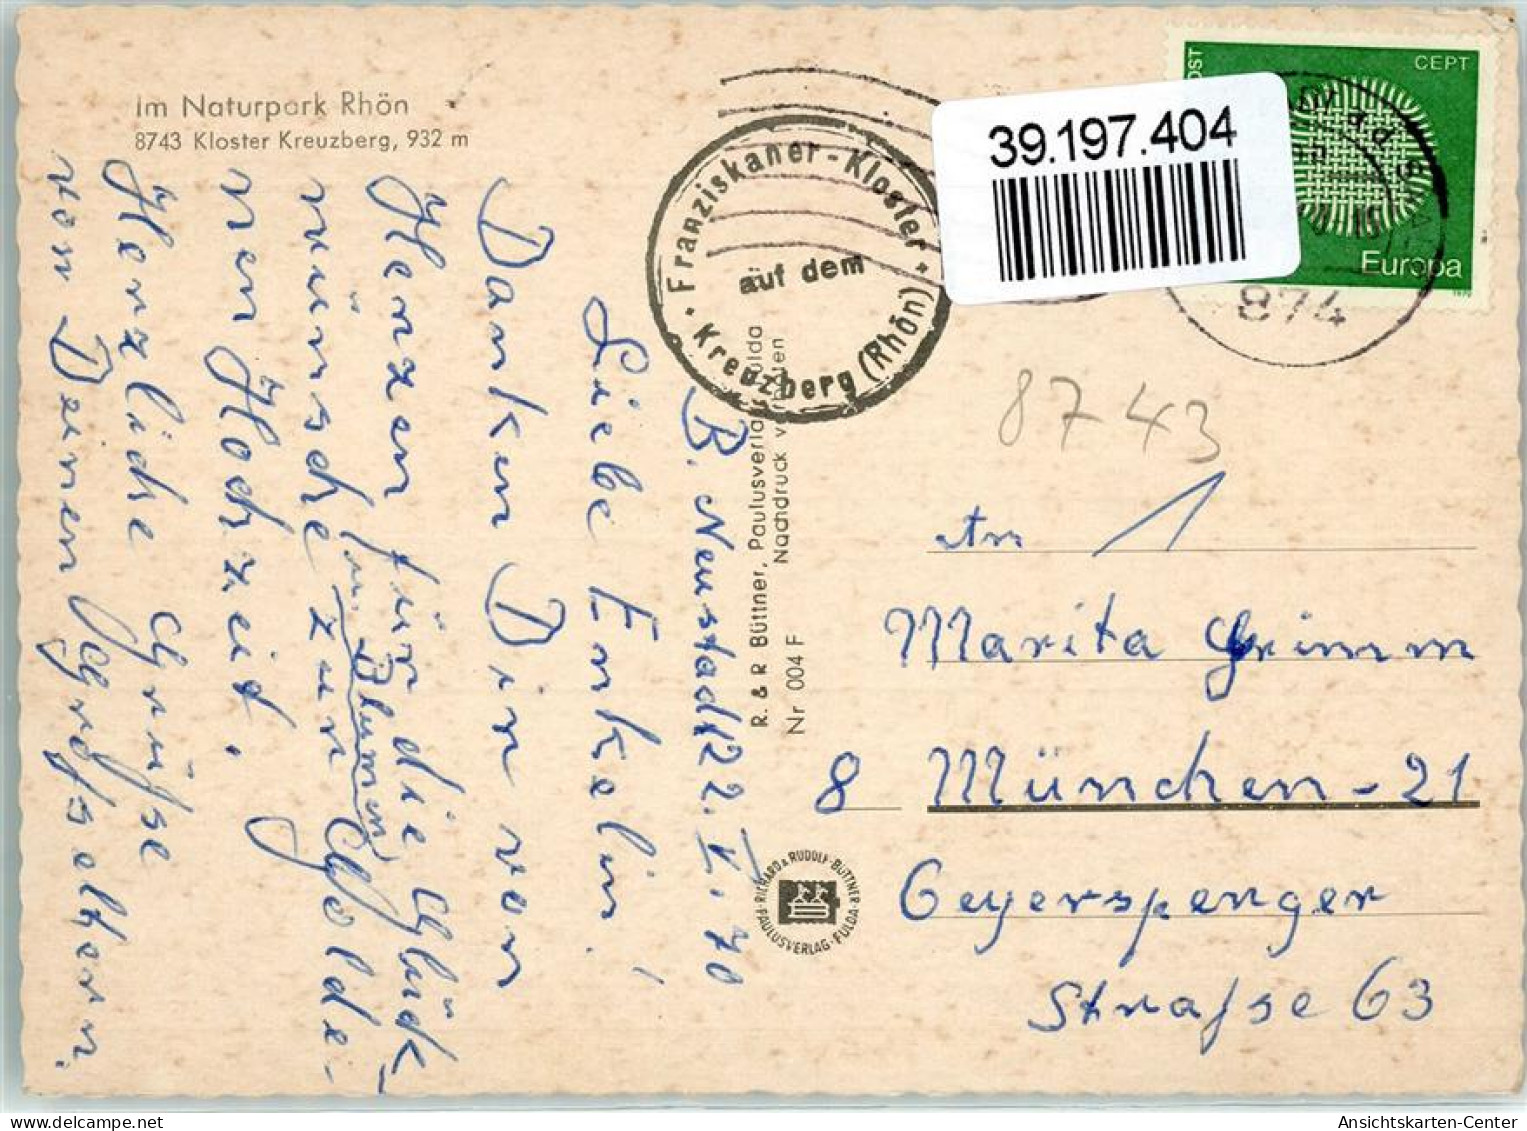 Im Naturpark Rhön
8743 Kloster Kreuzberg, 932 m
B. Neustadt 22. V. 70
Liebe Enkelin!
Danken Dir von
Herzen für die Glück-
wünsche (u. Blumen) zur Golde-
nen Hochzeit.
Herzliche Grüsse
von Deinen Großeltern.
Franziskaner-Kloster
auf dem
Kreuzberg (Rhön)
R. & R. Büttner, Paulusverlag, Fulda
Nachdruck verboten
Nr 004 F
RICHARD & RUDOLF BÜTTNER
PAULUSVERLAG · FULDA
39.197.404
CEPT
Europa
1970
874
8743
An
Marita Grimm
8 München-21
Geyerspenger
Straße 63
Ansichtskarten-Center